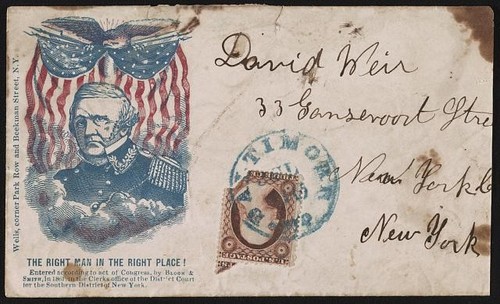 Wells, corner Park Row and Beekman Street, N.Y.
THE RIGHT MAN IN THE RIGHT PLACE!
Entered according to act of Congress, by BROWN &
in the Clerk's office of the District Court
for the Southern District of New York.
David Weir
33 Gansevoort Stre
New York
New York
BALTIMORE
U.S. POSTAGE